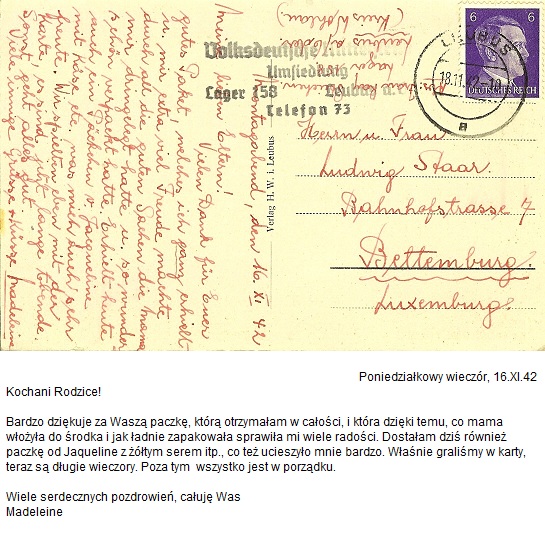 Volksdeutsche
Umsiedlung
Lager 158 Leubus
Telefon 73
Leubus a/Oder
(Kreis Wohlau)
6 6
DEUTSCHES REICH
LEUBUS
18.11.42
a
Herrn u. Frau
Ludwig Staar.
Bahnhofstrasse 7
Bettemburg.
Luxemburg.
Verlag H. W. i. Leubus
Montagabend, den 16. XI. 42
Meine lieben Eltern!
Vielen Dank für Euer
gutes Paket welches ich ganz erhielt
u. mir extra viel Freude machte
durch all die guten Sachen die Mama
mir dreingelegt hatte u. so wunder
schön verpackt hatte. Erhielt heute
auch ein Päckchen v. Jacqueline
mit Käse etc. was mich auch sehr
freut. Wir spielten eben mit der
Karte, es sind jetzt lange Abende.
Sonst geht alles gut.
Viele Grüsse & Küsse Madeleine
Poniedziałkowy wieczór, 16.XI.42
Kochani Rodzice!
Bardzo dziękuje za Waszą paczkę, którą otrzymałam w całości, i która dzięki temu, co mama
włożyła do środka i jak ładnie zapakowała sprawiła mi wiele radości. Dostałam dziś również
paczkę od Jaqueline z żółtym serem itp., co też ucieszyło mnie bardzo. Właśnie graliśmy w karty,
teraz są długie wieczory. Poza tym wszystko jest w porządku.
Wiele serdecznych pozdrowień, całuję Was
Madeleine